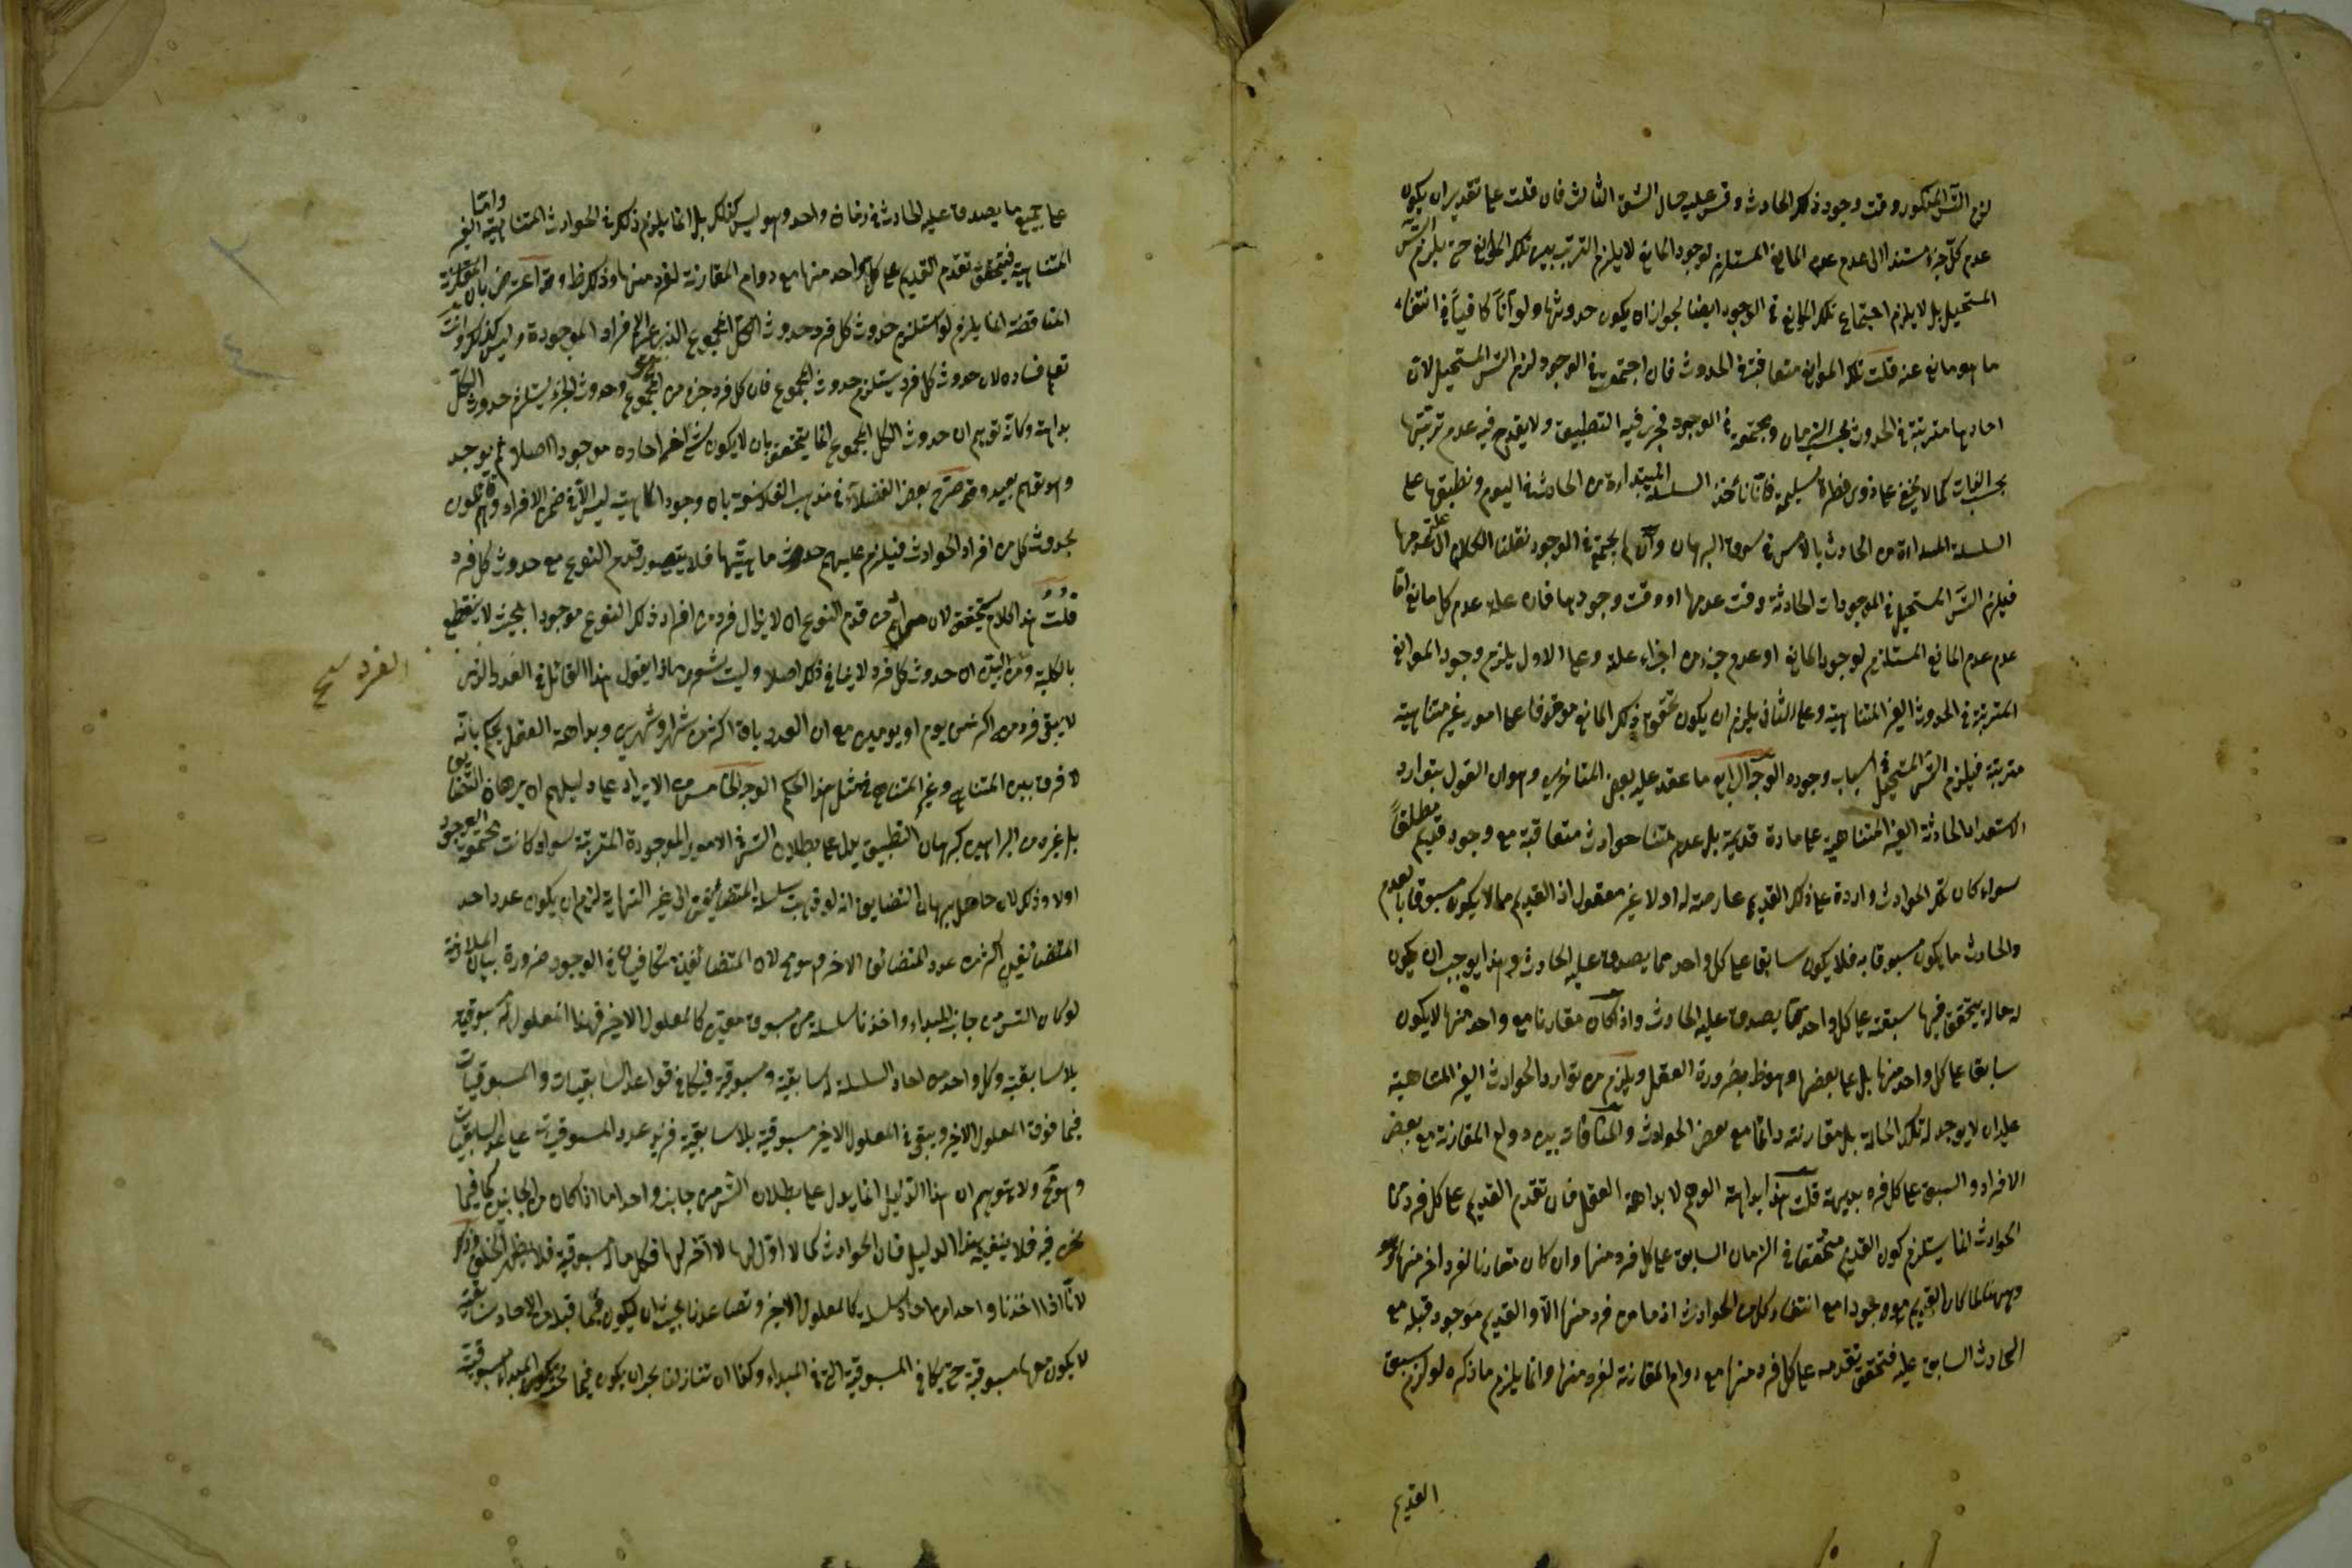 لزم التس المذكور وقت وجود ذلك الحادث وقس عليه حال الشق الثالث فان قلت على تقدير ان يكون
عدم كل جزء مستندا الى عدم عدم المانع المستلزم لوجود المانع لا يلزم الترتب بين تلك الموانع حتى يلزم التس
المستحيل بل لا يلزم اجتماع تلك الموانع في الوجود ايضا لجواز ان يكون حدوثها ولو آنا كافيا في انتفاء
ما هو مانع عنه قلت تلك الموانع متعاقبة في الحدوث فان اجتمعت في الوجود لزم التس المستحيل لان
احادها مترتبة في الحدوث بحسب الزمان ومجتمعة في الوجود فيجرى فيه التطبيق ولا يقدح فيه عدم ترتبها
بحسب الذات كما لا يخفى على ذوى فطرة سليمة فانا نأخذ السلسلة المبتداءة من الحادث في اليوم ونطبقها على
السلسلة المبتداءة من الحادث بالامس في سوق البرهان وان لم يجتمع في الوجود نقلنا الكلام الى علة عدمها
فيلزم التس المستحيل في الموجودات الحادثة وقت عدمها او وقت وجودها فان علة عدم كل مانع اما
عدم عدم المانع المستلزم لوجود المانع او عدم جزء من اجزاء علة وعلى الاول يلزم وجود الموانع
المترتبة في الحدوث الغير المتناهية وعلى الثاني يلزم ان يكون تحقق ذلك المانع موقوفا على امور غير متناهية
مترتبة فيلزم التس المستحيل في اسباب وجوده الوجه الرابع ما عقد عليه بعض المتاخرين وهو ان القول بتوارد
الاستعداد الحادثة الغير المتناهية على مادة قديمة بل عدم تناهى حوادث متعاقبة مع وجود قديم مطلقا
سواء كان تلك الحوادث واردة على ذلك القديم عارضة له اولا غير معقول اذ القديم مما لا يكون مسبوقا بالعدم
والحادث ما يكون مسبوقا به فلا يكون سابقا على كل واحد مما يصدق عليه الحادث وهذا يوجب ان يكون
له حالة يتحقق فيها سبقه على كل واحد مما يصدق عليه الحادث واذ كان مقارنا مع واحد منها لا يكون
سابقا على كل واحد منها بل على بعضها وهو ظ بضرورة العقل ويلزم من توارد الحوادث الغير المتناهية
عليه ان لا يوجد له تلك الحالة بل مقارنته دائما مع بعض الحوادث والمنافات بين دوام المقارنة مع بعض
الافراد والسبق على كل فرد بديهة قلت هذا بداهة الوهم لا بداهة العقل فان تقدم القديم على كل فرد من
الحوادث انما يستلزم كون القديم متحققا في الزمان السابق على كل فرد منها وان كان مقارنا لفرد اخر منها
وههنا كما كان القديم موجودا مع انتفاء كل من الحوادث اذ ما من فرد منها الا والقديم موجود قبله مع
الحادث السابق عليه فتحقق تقدمه على كل فرد منها مع دوام المقارنة لفرد منها وانما يلزم ما ذكره لو لزم سبق
القديم
على جميع ما يصدق عليه الحادث في زمان واحد وهو ليس كذلك بل انما يلزم ذلك في الحوادث المتناهية واما الغير
المتناهية فيتحقق تقدم القديم على كل واحد منها مع دوام المقارنة لفرد منها وذلك ظ وقد اعترض بان المقارنة
المناقضة انما يلزم لو استلزم حدوث كل فرد حدوث الكل المجموع الافراد الموجودة وليس كذلك وانت
تعلم فساده لان حدوث كل فرد يستلزم حدوث المجموع فان كل فرد جزء من المجموع وحدوث الجزء يستلزم حدوث الكل
بداهة وكانه توهم ان حدوث الكل المجموع انما يتحقق بان لا يكون شئ من احاده موجودا اصلا ثم يوجد
وهو توهم بعيد وقد صرح بعض الفضلاء في مذهب الفلاسفة بان وجود الماهية ليس الا في ضمن الافراد وهم قائلون
بحدوث كل من افراد الحوادث فيلزم عليهم حدوث ماهيتها فلا يتصور قدم النوع مع حدوث كل فرد
قلت هذا كلام لان مرادهم من قدم النوع ان لا يزال فرد من افراد ذلك النوع موجودا بحيث لا ينقطع
بالكلية ومن البين ان حدوث كل فرد لا ينافي ذلك اصلا وليت شعرى ماذا يقول هذا القائل في الفرد الذى
لا يبقى فرد من اكثر من يوم او يومين مع ان الورد باق اكثر من شهر او شهرين وبداهة العقل يحكم بانه
لا فرق بين المتناهي وغير المتناهي في مثل هذا الحكم الوجه الخامس من الايراد على دليلهم ان برهان التضايف
بل غيره من البراهين كبرهان التطبيق يدل على بطلان التس في الامور الموجودة المترتبة سواء كانت مجتمعة الوجود
اولا وذلك لان حاصل برهان التضايف انه لو ذهبت سلسلة المتضايفين الى غير النهاية لزم ان يكون عدد احد
المتضايفين اكثر من عدد المتضايف الاخر وهو مح لان المتضايفين متكافيان في الوجود ضرورة بيان الملازمة
لو كان التس من جانب المبداء واخذنا سلسلة من مسبوق معين كالمعلول الاخير فهذا المعلول له مسبوقية
بلا سابقية وكل واحد من احاد السلسلة له سابقية ومسبوقية فيتكافؤ عدد السابقيات والمسبوقيات
فيما فوق المعلول الاخير ويبقى في المعلول الاخير مسبوقية بلا سابقية فزيد عدد المسبوقيات على عدد السابقيات
وهو مح ولا يتوهم ان هذا الدليل انما يدل على بطلان التس من جانب واحد اما اذا كان من الجانبين كما فيما
نحن فيه فلا ينفيه هذا الدليل فان الحوادث كما لا اول لها لا آخر لها فكل ماله مسبوقية فلا يظهر الخلف وذلك
لانا اذا اخذنا واحدا من احاد السلسلة كالمعلول الاخير وتصاعدنا يجب ان يكون فيما قبله من الاحاد سابقية
لا يكون معها مسبوقية حتى يكافي المسبوقية التي في المبداء وكذا ان تنازلنا يجب ان يكون فيما تحته مسبوقية
الفرد صح